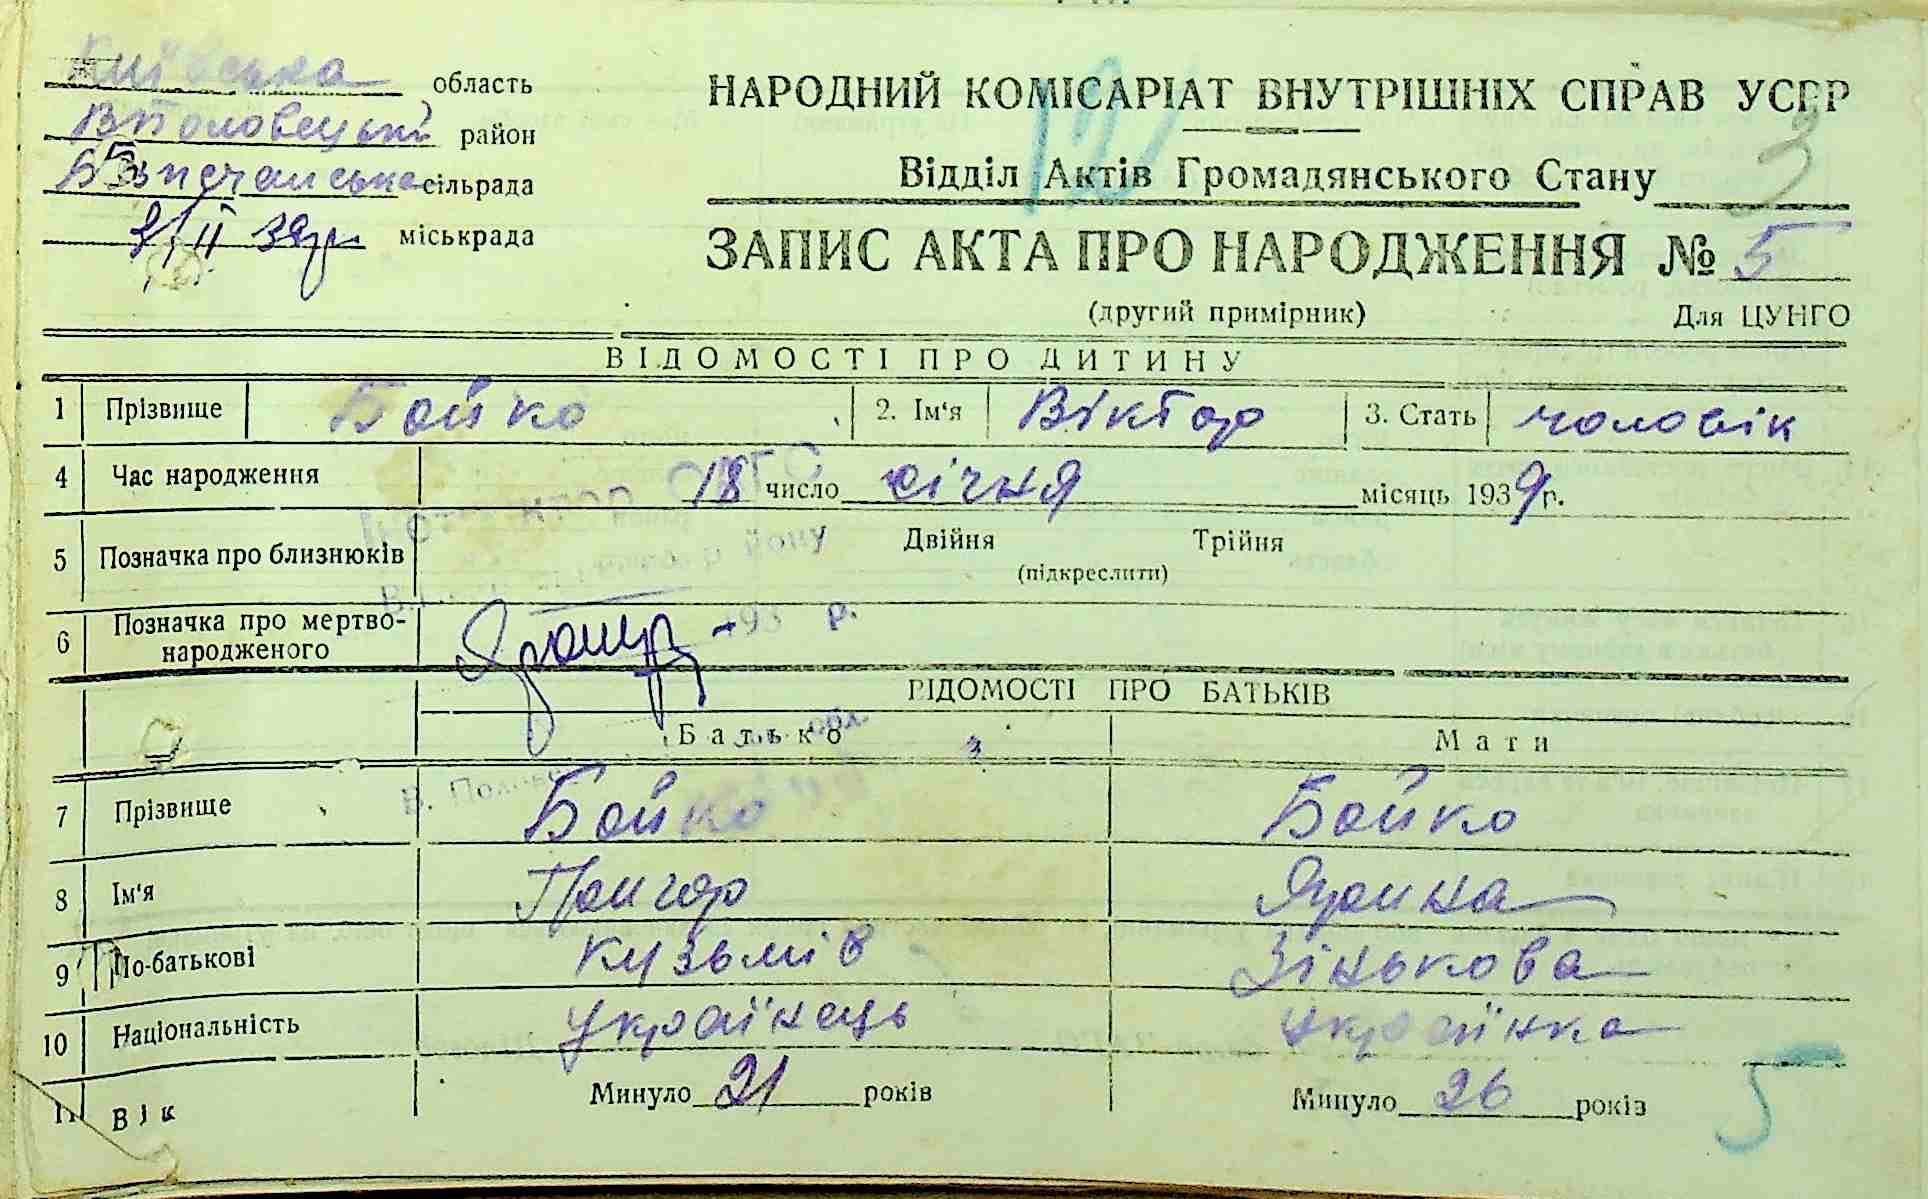 Київська область
В Половецькі район
сільрада
міськрада
НАРОДНИЙ КОМІСАРІАТ ВНУТРІШНІХ СПРАВ УСРР
Відділ Актів Громадянського Стану
3
ЗАПИС АКТА ПРО НАРОДЖЕННЯ № 5
(другий примірник) Для ЦУНГО
ВІДОМОСТІ ПРО ДИТИНУ
1 Прізвище Бойко 2. Ім'я Віктор 3. Стать чоловік
4 Час народження 18 число січня місяць 1939 р.
5 Позначка про близнюків Двійня Трійня
(підкреслити)
6 Позначка про мертво-
народженого 193 р.
ВІДОМОСТІ ПРО БАТЬКІВ
Батько Мати
7 Прізвище Бойко Бойко
8 Ім'я Григор Ярина
9 По-батькові Кузьмів Зінькова
10 Національність Українець Українка
11 Вік Минуло 21 років Минуло 26 років
5